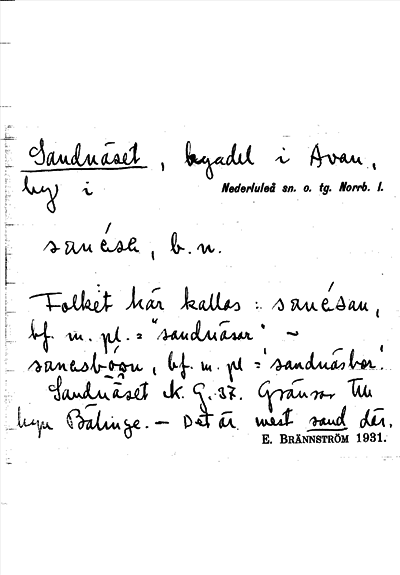 Sandnäset, byadel i Avan,
by i Nederluleå sn. o. tg. Norrb. l.
sanésə, b.n.
Folket här kallas: sanésan,
bf. m. pl. = "sandnäsar" ~
bf. m. pl = "sandnäsbor".
Sandnäset k. G. 37. Gränsar till
byn Bälinge. — Det är mest sand där.
E. BRÄNNSTRÖM 1931.